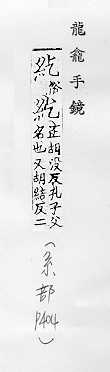 龍龕手鏡
俗紇正胡没反孔子父
名也又胡結反二
(糸部 P404)